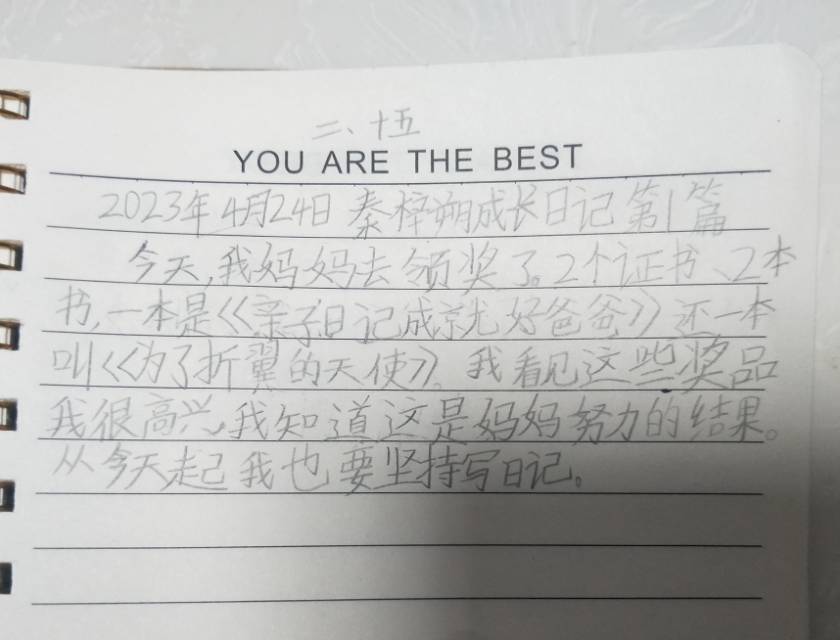 二、十五
YOU ARE THE BEST
2023年4月24日 秦梓朔成长日记 第1篇
今天,我妈妈去领奖了。2个证书、2本
书,一本是《亲子日记成就好爸爸》还一本
叫《为了折翼的天使》。我看见这些奖品
我很高兴,我知道这是妈妈努力的结果。
从今天起我也要坚持写日记。